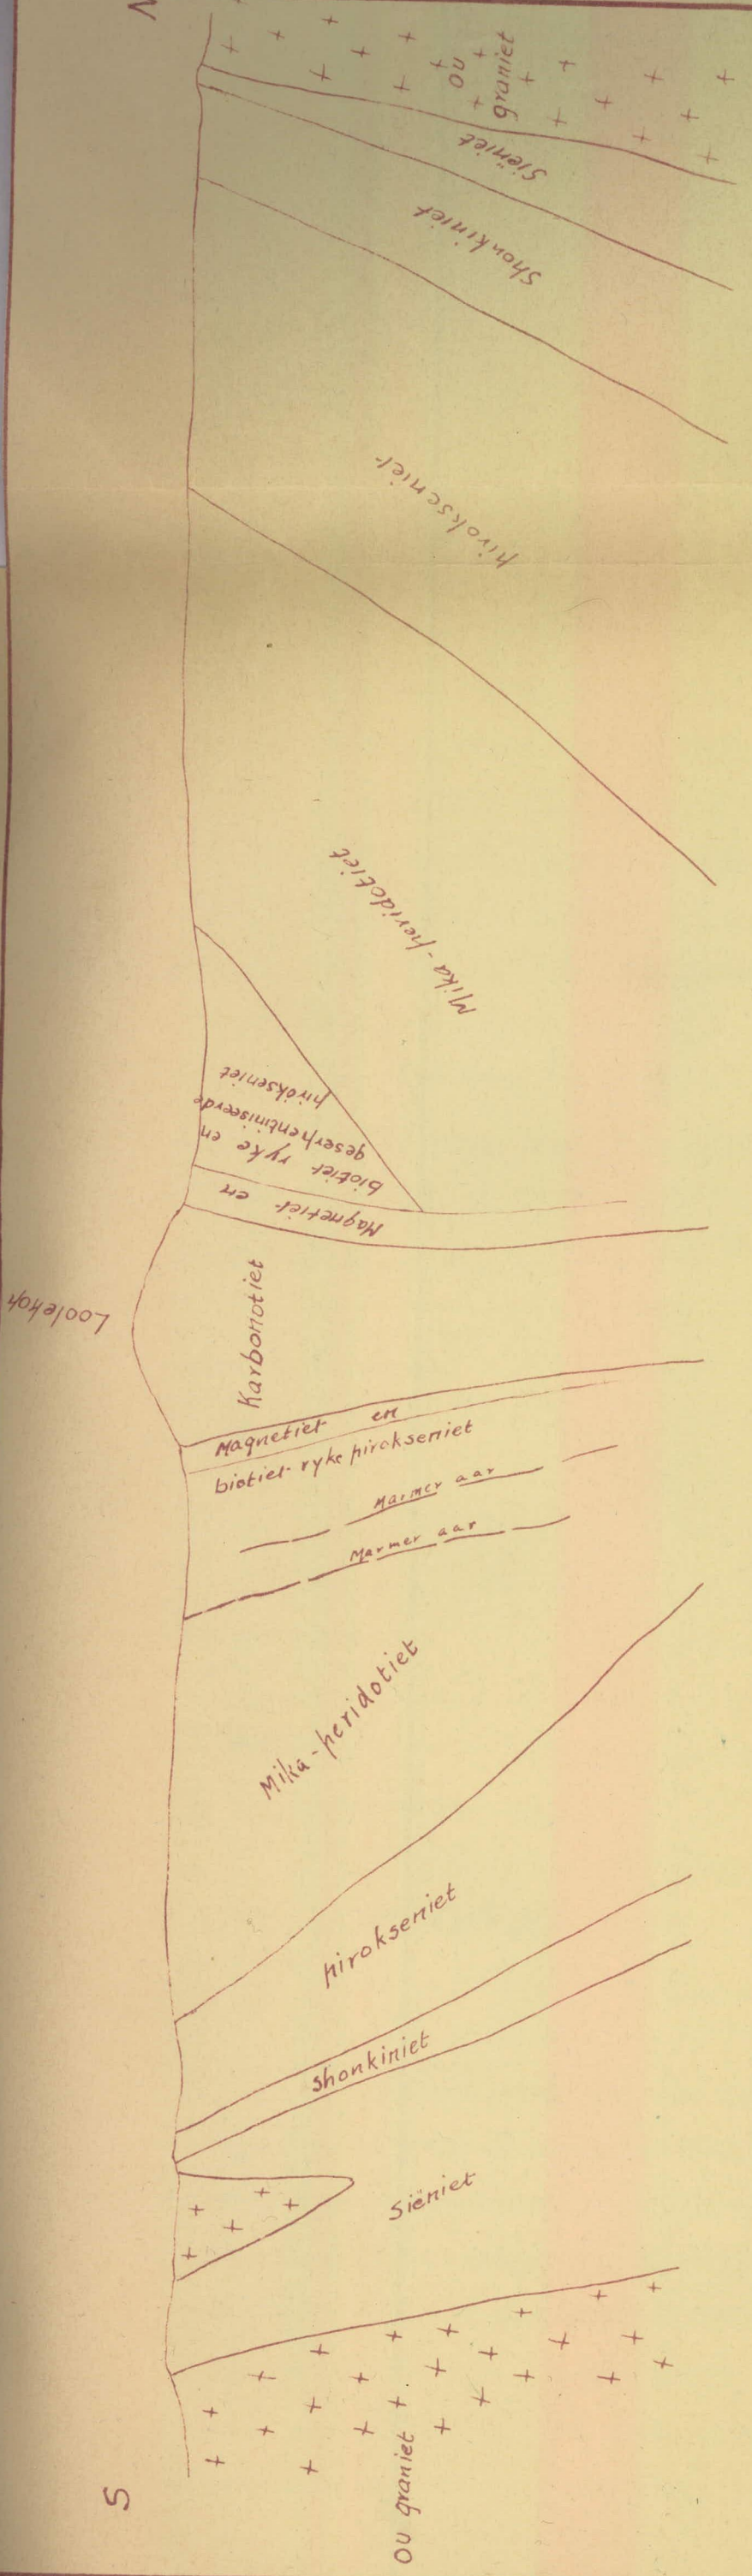 N
OU
graniet
Siëniet
Shonkiniet
pirokseniet
Mika-peridotiet
geserpentiniseerde
pirokseniet
biotiet ryke en
Magnetiet en
Loolekop
Karbonotiet
Magnetiet en
biotiet-ryke pirokseniet
Marmer aar
Marmer aar
Mika-peridotiet
pirokseniet
Shonkiniet
Siëniet
OU graniet
S